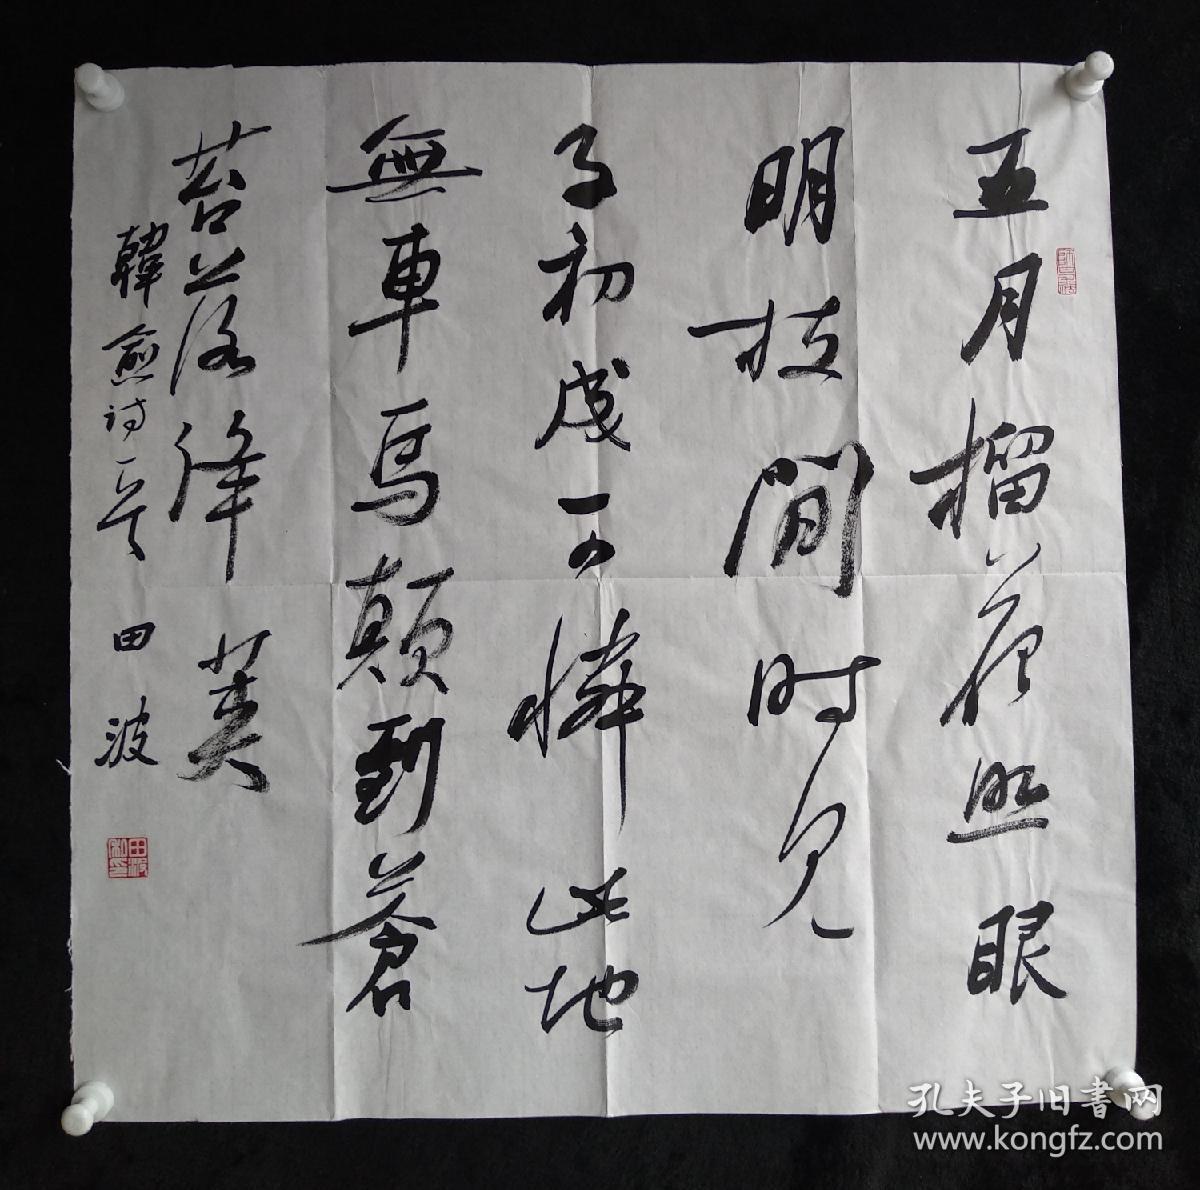 五月榴花照眼
明枝間时见
子初成可憐此地
無車馬顛到蒼
苔落絳英
韓愈诗一首 田波
田波私印
孔夫子旧書网
www.kongfz.com